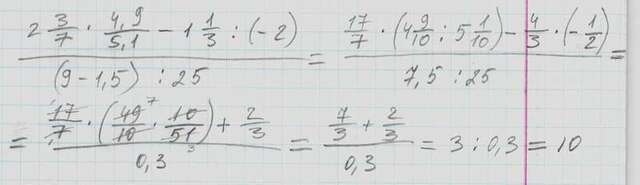 (2 3/7 · 4,9/5,1 − 1 1/3 : (−2)) / ((9 − 1,5) : 25) = (17/7 · (4 9/10 : 5 1/10) − 4/3 · (−1/2)) / (7,5 : 25) =
= (17/7 · (49/10 · 10/51) + 2/3) / 0,3 = (7/3 + 2/3) / 0,3 = 3 : 0,3 = 10